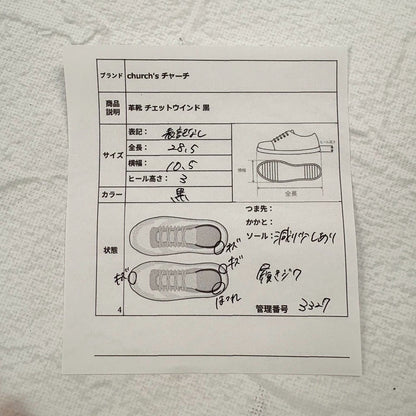 ブランド church's チャーチ
商品説明 革靴 チェットウインド 黒
サイズ
表記： 表記なし
全長： 28.5
横幅： 10.5
ヒール高さ： 3
ヒール高さ
横幅
全長
カラー 黒
状態
つま先：
かかと：
ソール： 減り少しあり
キズ
キズ
キズ
ほつれ
履きジワ
4
管理番号 3327